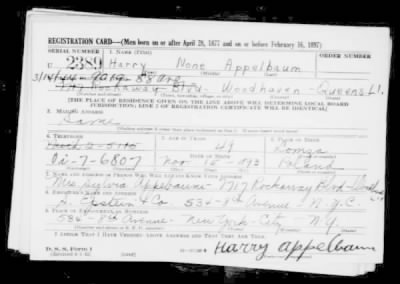 REGISTRATION CARD—(Men born on or after April 28, 1877 and on or before February 16, 1897)
SERIAL NUMBER 1. NAME (Print) ORDER NUMBER
U 2389 Harry None Appelbaum
(First) (Middle) (Last)
88 Ave
Rockaway Blvd. Woodhaven Queens L.I.
[THE PLACE OF RESIDENCE GIVEN ON THE LINE ABOVE WILL DETERMINE LOCAL BOARD
JURISDICTION; LINE 2 OF REGISTRATION CERTIFICATE WILL BE IDENTICAL]
3. MAILING ADDRESS
Same
4. TELEPHONE 5. AGE IN YEARS 6. PLACE OF BIRTH
49 Lomza
7-6807 Nov 15 1893 Poland
7. NAME AND ADDRESS OF PERSON WHO WILL ALWAYS KNOW YOUR ADDRESS
Mrs Sylvia Appelbaum - 7717 Rockaway Blvd
8. EMPLOYER'S NAME AND ADDRESS
S. Epstein & Co 534 - 8th Avenue - N.Y.C.
9. PLACE OF EMPLOYMENT OR BUSINESS
534 - 8th Avenue - New York City N.Y.
I AFFIRM THAT I HAVE VERIFIED ABOVE ANSWERS AND THAT THEY ARE TRUE.
D. S. S. Form 1
Harry Appelbaum